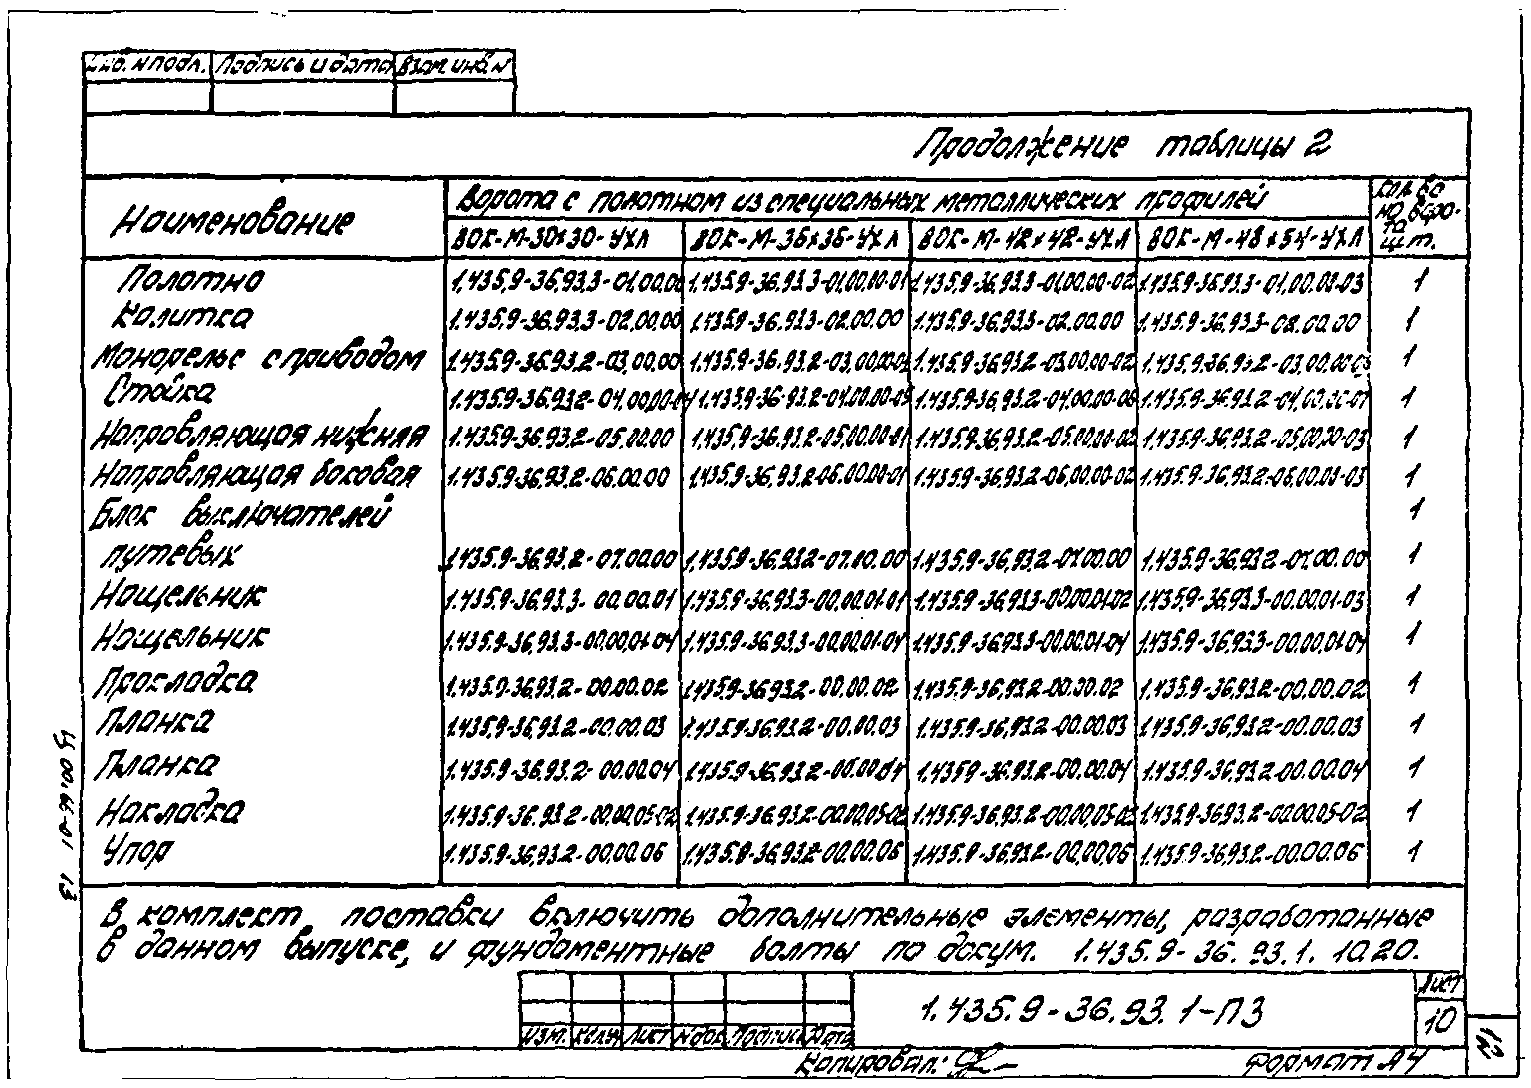 Инв. N подл. Подпись и дата Взам. инв. N
Продолжение таблицы 2
Наименование Ворота с полотном из специальных металлических профилей Кол-во на воро-та шт.
ВОК-М-30х30-УХЛ ВОК-М-36х36-УХЛ ВОК-М-42х42-УХЛ ВОК-М-48х54-УХЛ
Полотно 1.435.9-36.93.3-01.00.00 1.435.9-36.93.3-01.00.00-01 1.435.9-36.93.3-01.00.00-02 1.435.9-36.93.3-01.00.00-03 1
Калитка 1.435.9-36.93.3-02.00.00 1.435.9-36.93.3-02.00.00 1.435.9-36.93.3-02.00.00 1.435.9-36.93.3-02.00.00 1
Монорельс с приводом 1.435.9-36.93.2-03.00.00 1.435.9-36.93.2-03.00.00-01 1.435.9-36.93.2-03.00.00-02 1.435.9-36.93.2-03.00.00-03 1
Стойка 1.435.9-36.93.2-04.00.00-04 1.435.9-36.93.2-04.00.00-05 1.435.9-36.93.2-04.00.00-06 1.435.9-36.93.2-04.00.00-07 1
Направляющая нижняя 1.435.9-36.93.2-05.00.00 1.435.9-36.93.2-05.00.00-01 1.435.9-36.93.2-05.00.00-02 1.435.9-36.93.2-05.00.00-03 1
Направляющая боковая 1.435.9-36.93.2-06.00.00 1.435.9-36.93.2-06.00.00-01 1.435.9-36.93.2-06.00.00-02 1.435.9-36.93.2-06.00.00-03 1
Блок выключателей 1
путевых 1.435.9-36.93.2-07.00.00 1.435.9-36.93.2-07.00.00 1.435.9-36.93.2-07.00.00 1.435.9-36.93.2-07.00.00 1
Нащельник 1.435.9-36.93.3-00.00.01 1.435.9-36.93.3-00.00.01-01 1.435.9-36.93.3-00.00.01-02 1.435.9-36.93.3-00.00.01-03 1
Нащельник 1.435.9-36.93.3-00.00.01-04 1.435.9-36.93.3-00.00.01-04 1.435.9-36.93.3-00.00.01-04 1.435.9-36.93.3-00.00.01-04 1
Прокладка 1.435.9-36.93.2-00.00.02 1.435.9-36.93.2-00.00.02 1.435.9-36.93.2-00.00.02 1.435.9-36.93.2-00.00.02 1
Планка 1.435.9-36.93.2-00.00.03 1.435.9-36.93.2-00.00.03 1.435.9-36.93.2-00.00.03 1.435.9-36.93.2-00.00.03 1
Планка 1.435.9-36.93.2-00.00.04 1.435.9-36.93.2-00.00.04 1.435.9-36.93.2-00.00.04 1.435.9-36.93.2-00.00.04 1
Накладка 1.435.9-36.93.2-00.00.05-02 1.435.9-36.93.2-00.00.05-02 1.435.9-36.93.2-00.00.05-02 1.435.9-36.93.2-00.00.05-02 1
Упор 1.435.9-36.93.2-00.00.06 1.435.9-36.93.2-00.00.06 1.435.9-36.93.2-00.00.06 1.435.9-36.93.2-00.00.06 1
В комплект поставки включить дополнительные элементы, разработанные
в данном выпуске, и фундаментные болты по докум. 1.435.9-36.93.1.10.20.
1.435.9-36.93.1-ПЗ
Лист
10
Изм. Кол.уч Лист N док Подпись Дата
Копировал: Формат А4
12